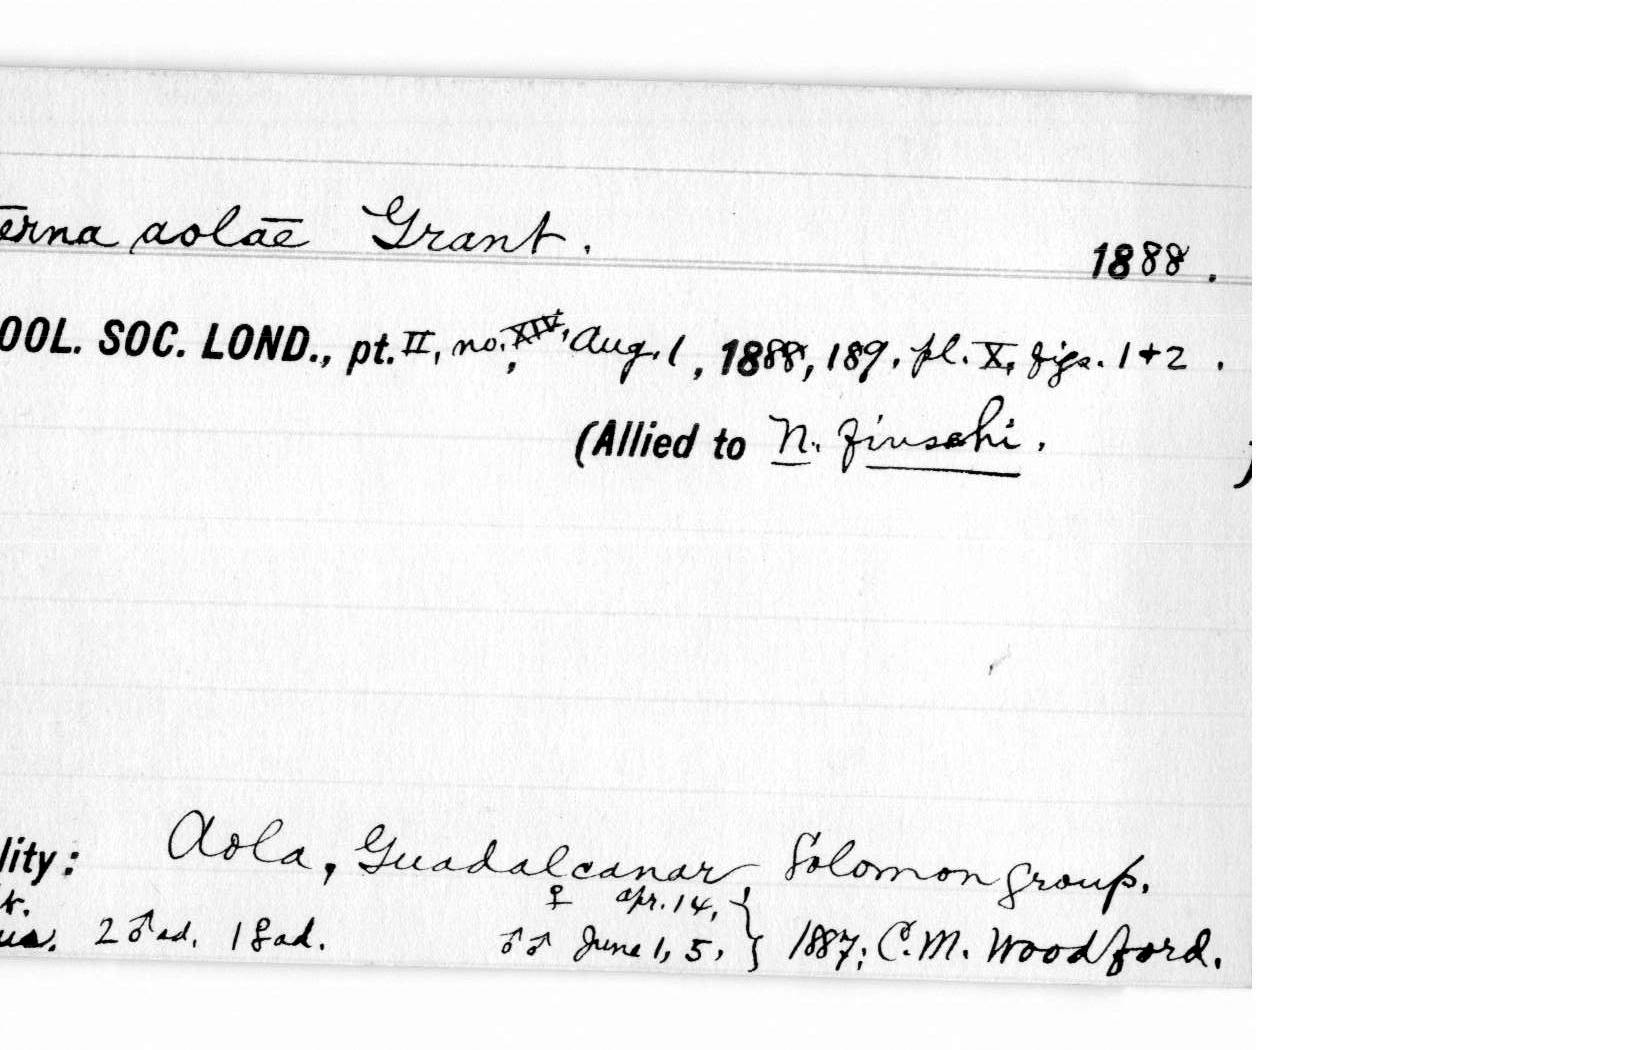 erna aolae Grant. 1888.
OOL. SOC. LOND., pt. II, no. XIV, Aug. 1, 1888, 189, pl. X, figs. 1+2.
(Allied to N. finschi. )
lity: Aola, Guadalcanar Solomon group.
♀ Apr. 14,
2 ♂ ad. 1 ♀ ad. ♂♂ June 1, 5, } 1887; C.M. Woodford.